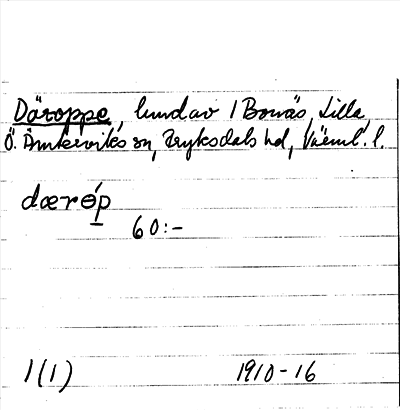 Däroppe, lund av 1 Borrås, Lilla,
Ö. Ämterviks sn, Fryksdals hd, Värml. l.
dærǿp
60:-
1(1) 1910-16